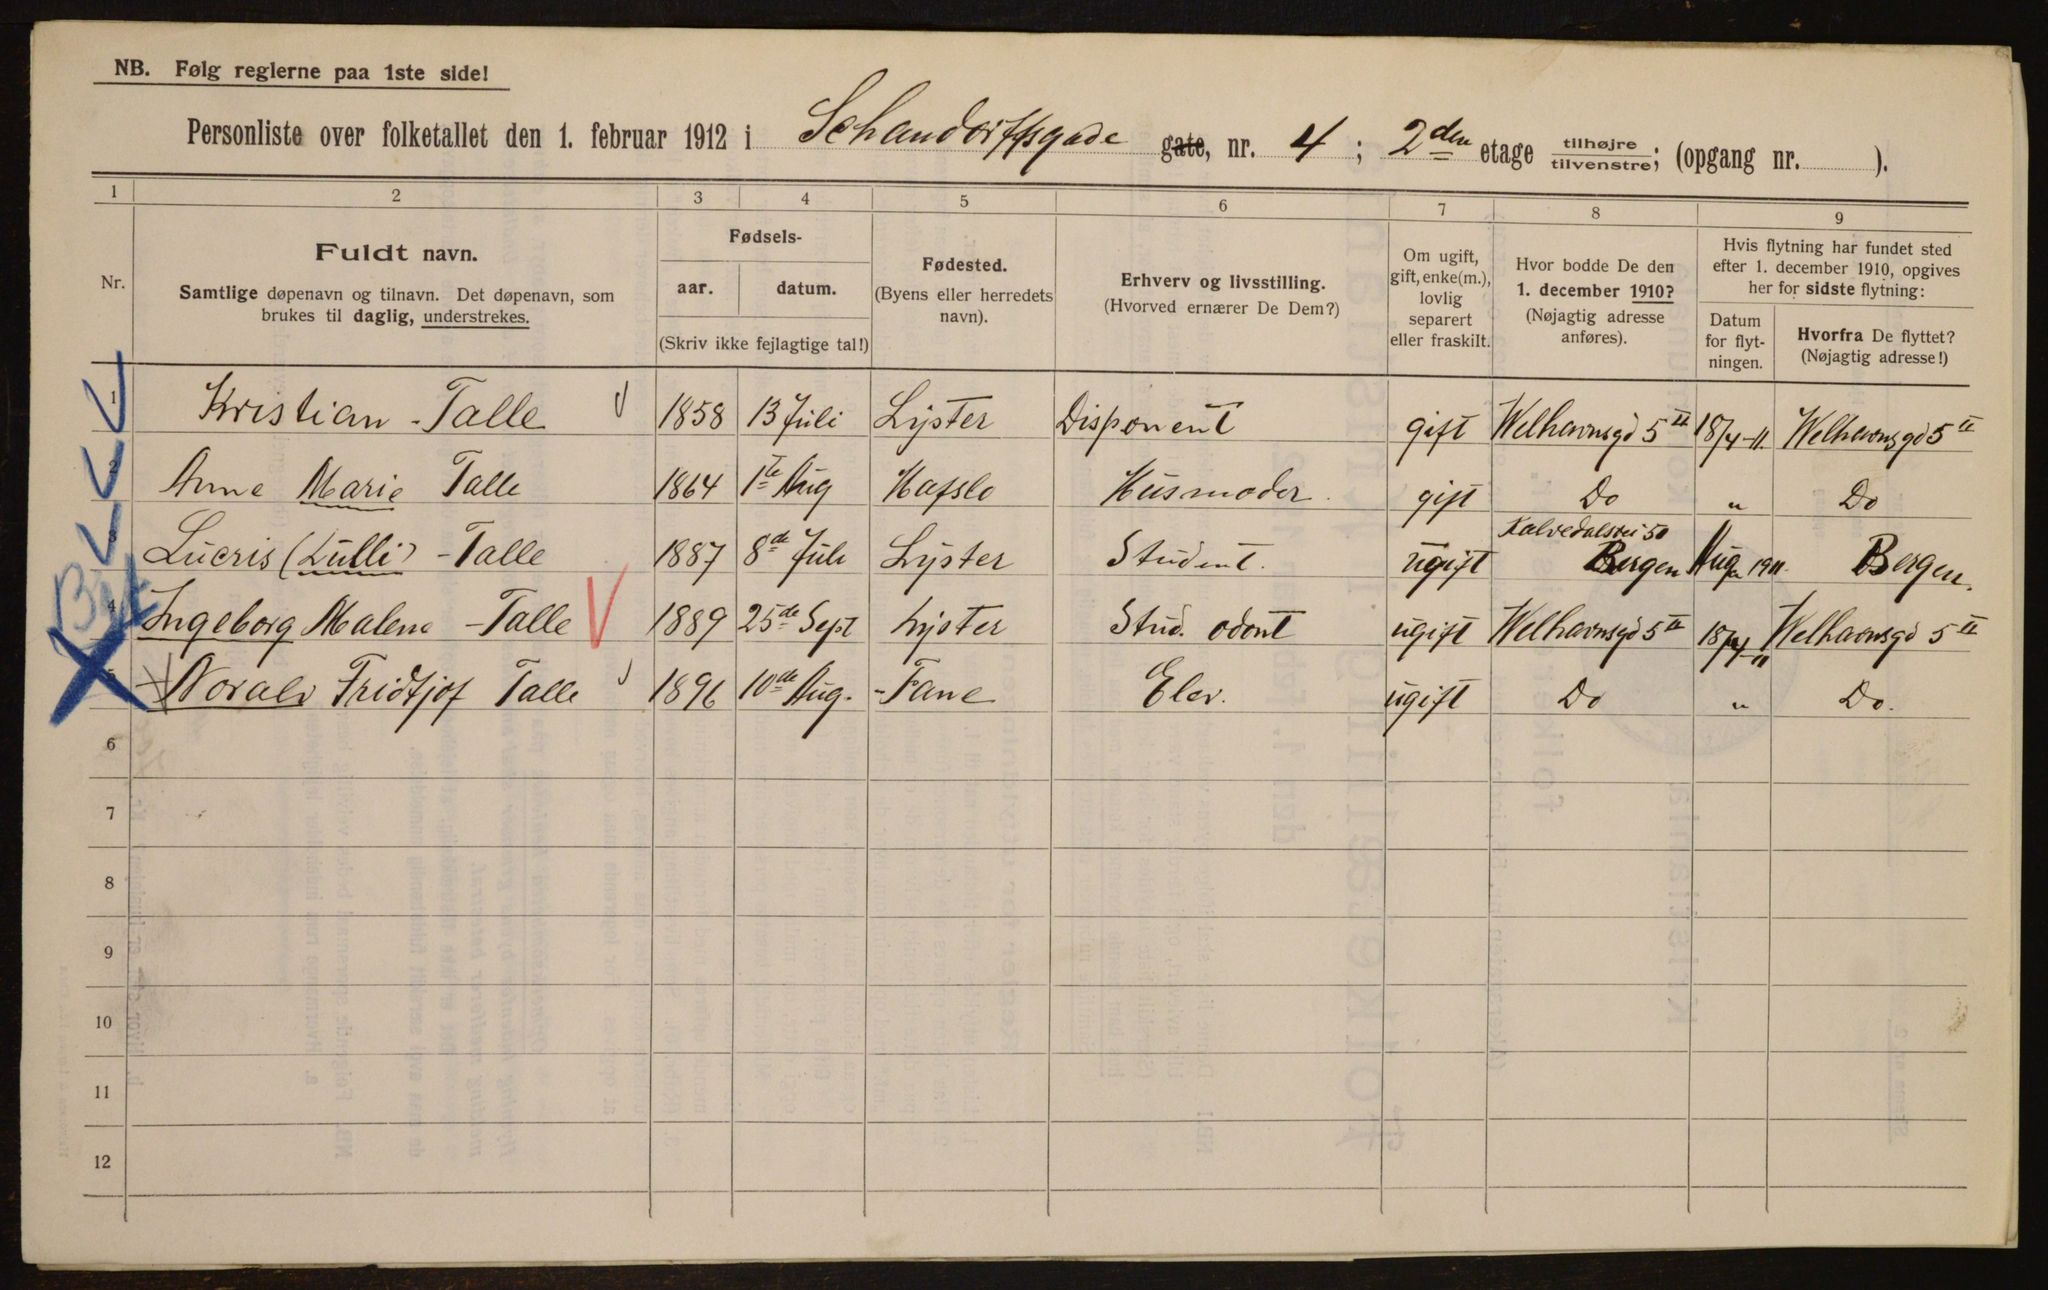 NB. Følg reglerne paa 1ste side!
Personliste over folketallet den 1. februar 1912 i Schandorffsgade gate, nr. 4; 2den etage tilhøjre tilvenstre; (opgang nr. ).
1 2 3 4 5 6 7 8 9
Nr.
Fuldt navn.
Samtlige døpenavn og tilnavn. Det døpenavn, som
brukes til daglig, understrekes.
Fødsels-
aar. datum.
(Skriv ikke fejlagtige tal!)
Fødested.
(Byens eller herredets
navn).
Erhverv og livsstilling.
(Hvorved ernærer De Dem?)
Om ugift,
gift, enke(m.),
lovlig
separert
eller fraskilt.
Hvor bodde De den
1. december 1910?
(Nøjagtig adresse
anføres).
Hvis flytning har fundet sted
efter 1. december 1910, opgives
her for sidste flytning:
Datum
for flyt-
ningen.
Hvorfra De flyttet?
(Nøjagtig adresse!)
1 Kristian Talle 1858 13 Juli Lyster Disponent gift Welhavnsgd 5 II 18/4-11. Welhavnsgd 5 II
2 Anne Marie Talle 1864 1te Aug Hafslo Husmoder. gift Do " Do
3 Lucris (Lulli) Talle 1887 8de Juli Lyster Student. ugift Kalvedalsvei 50 Bergen Aug 1911. Bergen.
4 Ingeborg Malene Talle 1889 25de Sept Lyster Stud. odont ugift Welhavnsgd 5 II 18/4-11 Welhavnsgd 5 II
5 Noralv Fridtjof Talle 1896 10de Aug. Fane Elev. ugift Do " Do.
6
7
8
9
10
11
12